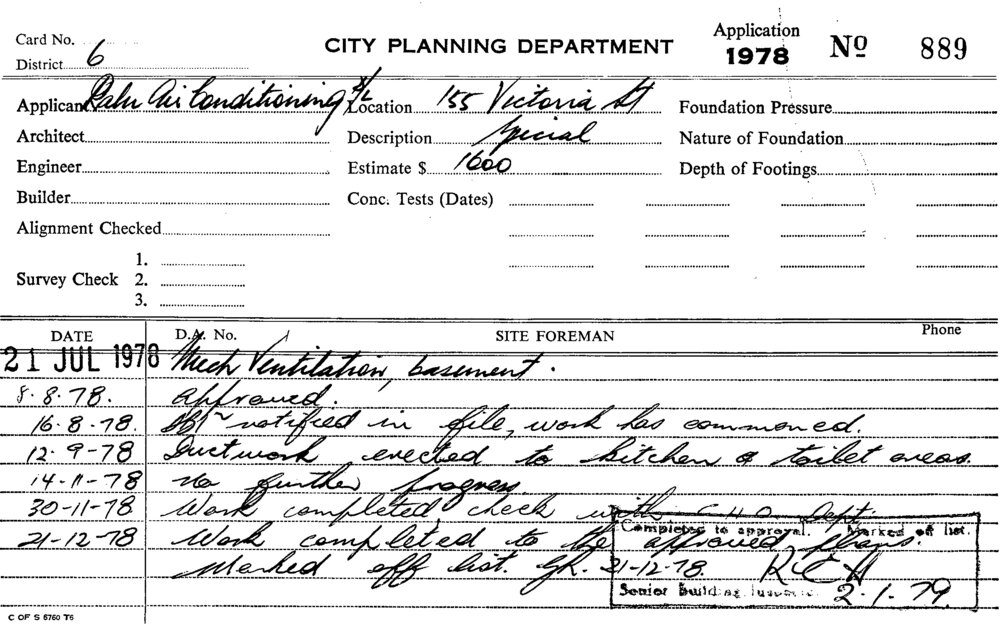 Card No.
District 6
CITY PLANNING DEPARTMENT
Application
1978
Nº 889
Applicant Air Conditioning P/L
Location 155 Victoria St
Foundation Pressure
Architect
Description Special
Nature of Foundation
Engineer
Estimate $ 1600
Depth of Footings
Builder
Conc. Tests (Dates)
Alignment Checked
Survey Check 1.
2.
3.
DATE D.A. No. SITE FOREMAN Phone
21 JUL 1978 Mech Ventilation, basement.
8.8.78. Approved.
16.8.78. notified in file, work has commenced.
12.9-78 Ductwork erected to kitchen & toilet areas.
14-11-78 No further progress.
30-11-78 Work completed check with C.H.O. Dept.
21-12-78 Work completed to the approved plans.
Marked off list. 21-12-78.
Completed to approval. Marked off list.
R C H
Senior Building 2.1.79.
C OF S 6760 T6